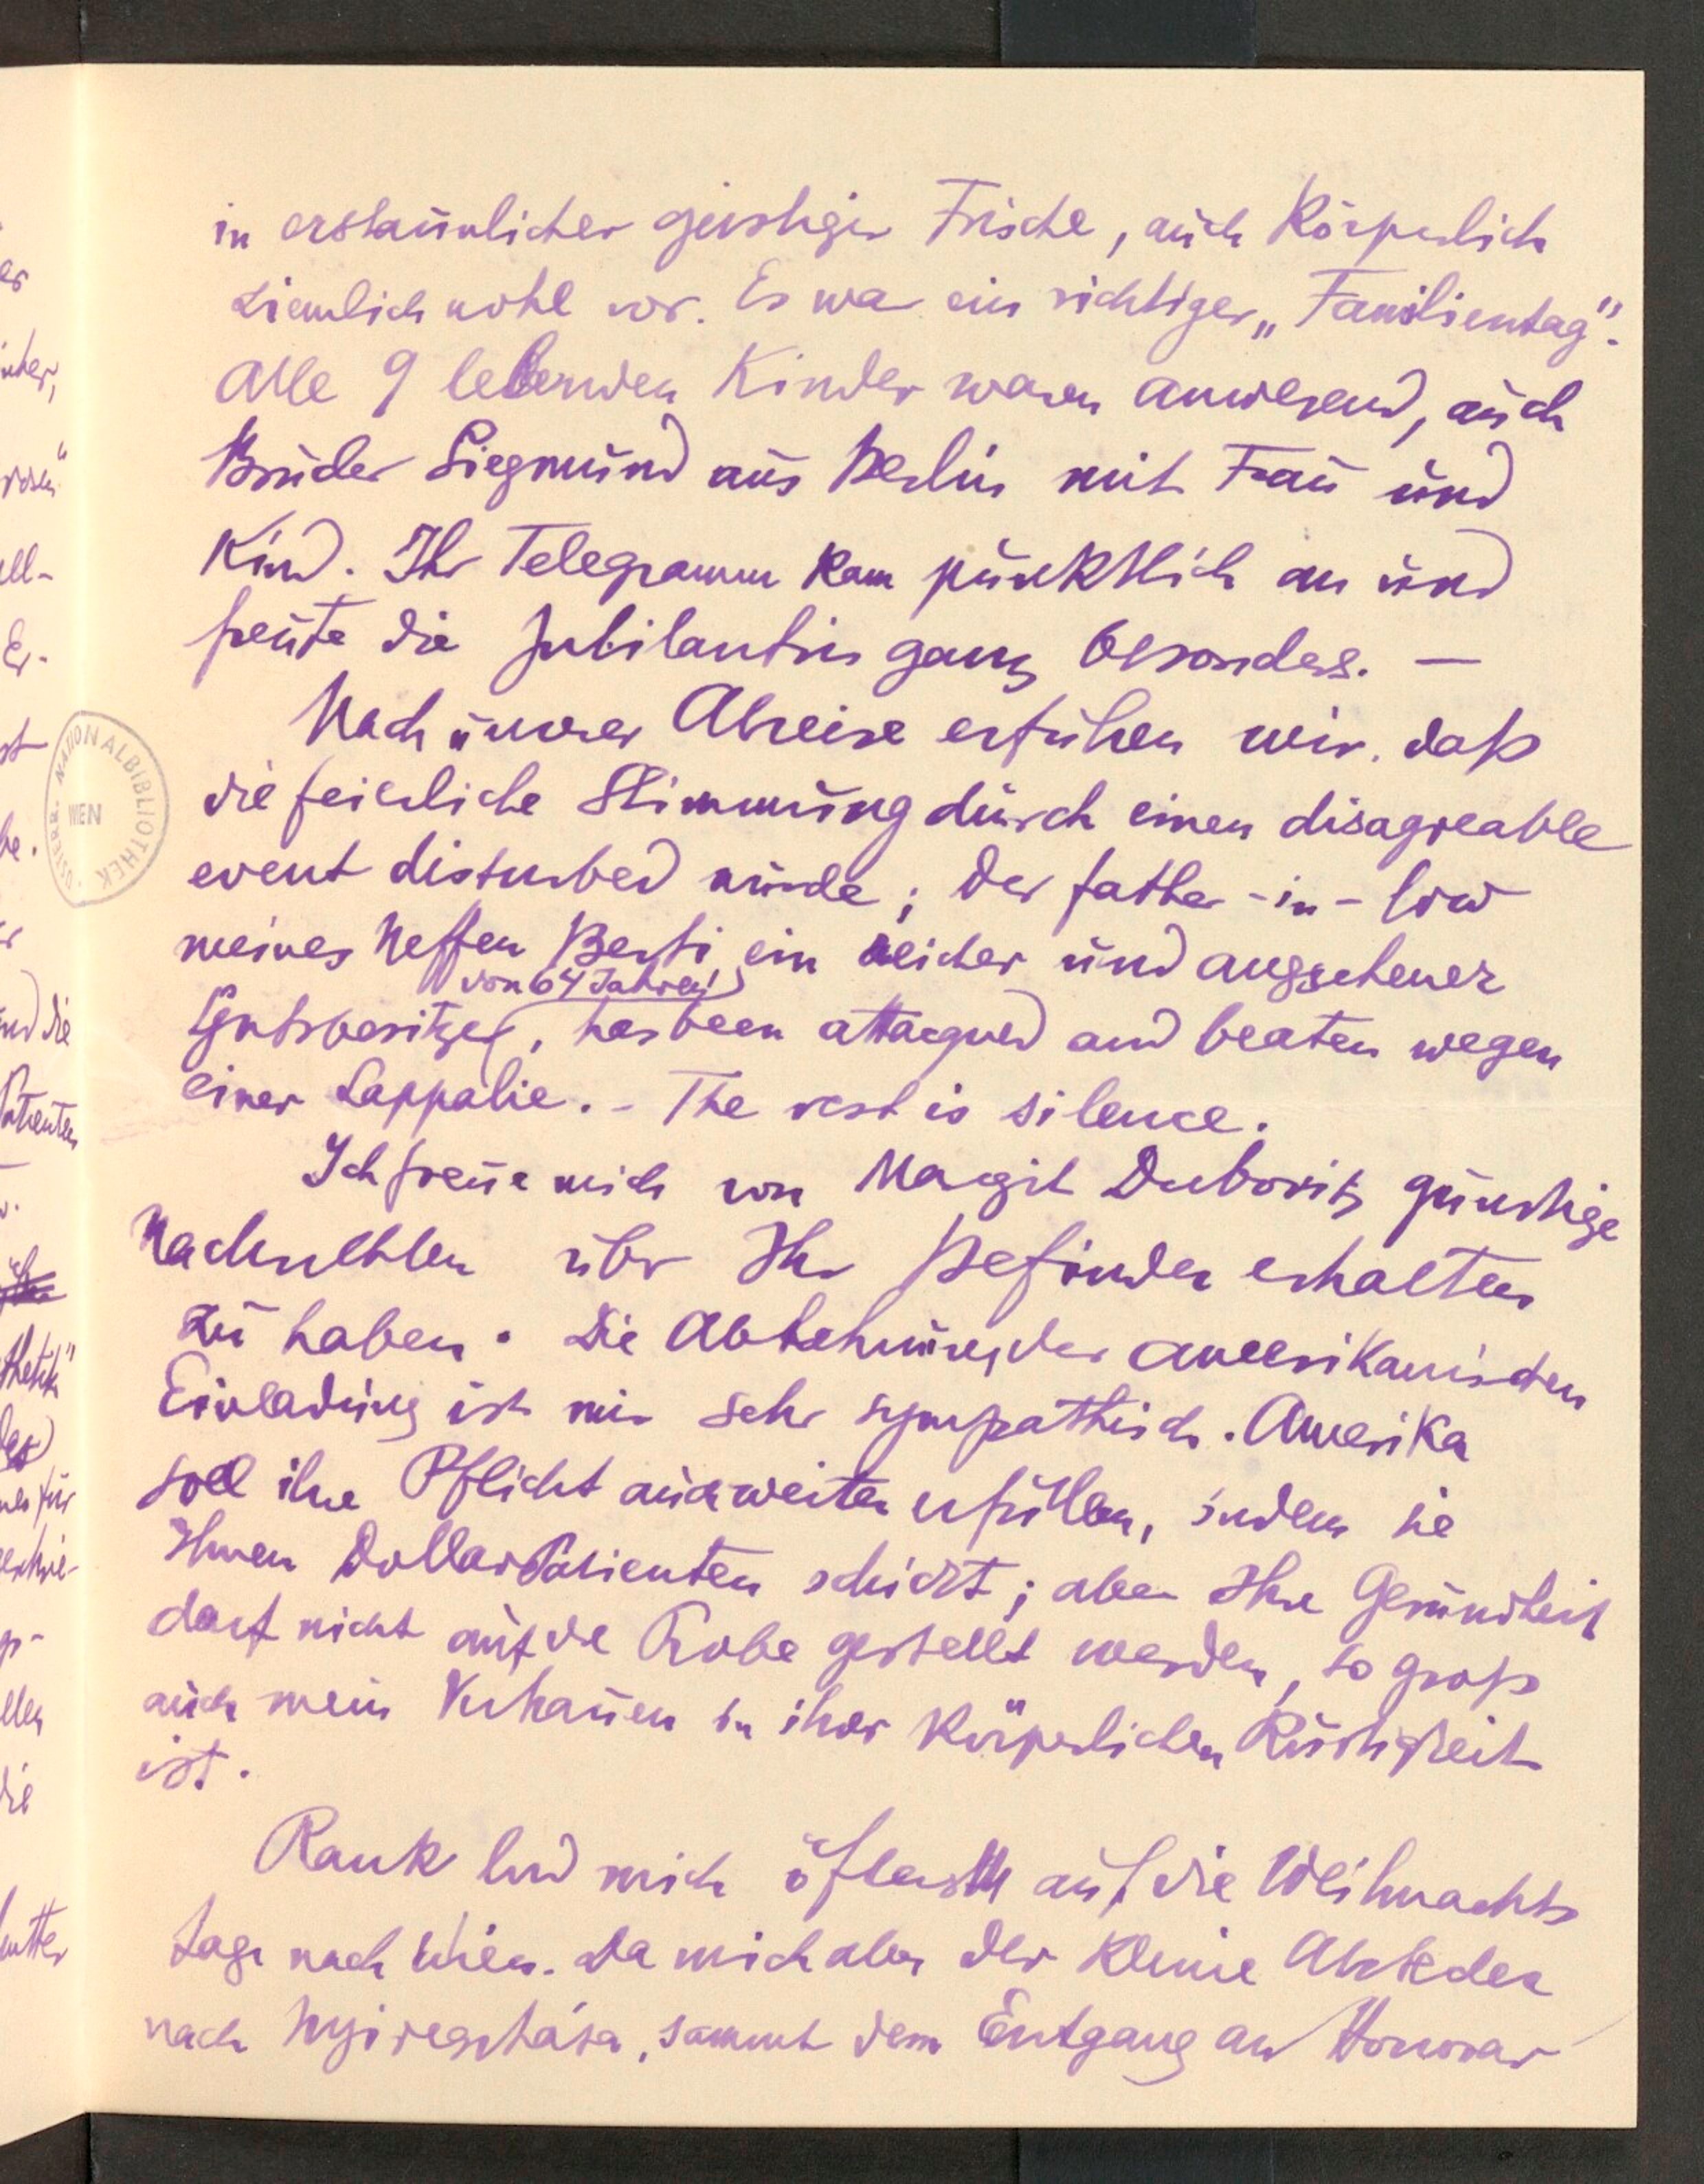 in erstaunlicher geistiger Frische, auch körperlich
ziemlich wohl vor. Es war ein richtiger „Familientag".
Alle 9 lebenden Kinder waren anwesend, auch
Bruder Siegmund aus Berlin mit Frau und
Kind. Ihr Telegramm kam pünktlich an und
freute die Jubilantin ganz besonders. —
Nach unserer Abreise erfuhren wir, daß
die feierliche Stimmung durch einen disagreable
event disturbed wurde; der father-in-low
meines Neffen Berti ein reicher und angesehener
von 64 Jahren!
Gutsbesitzer, has been attacqued and beaten wegen
einer Lappalie. - The rest is silence.
Ich freue mich von Margit Dubovitz günstige
Nachrichten über Ihr Befinden erhalten
zu haben. Die Ablehnung der amerikanischen
Einladung ist mir sehr sympathisch. Amerika
soll ihre Pflicht auch weiter erfüllen, indem sie
Ihnen Dollarpatienten schickt; aber Ihre Gesundheit
darf nicht auf die Probe gestellt werden, so groß
auch mein Vertrauen in ihrer körperlichen Rüstigkeit
ist.
Rank lud mich öfters auf die Weihnachts
tage nach Wien. Da mich aber der kleine Abstecher
nach Nyiregyháza, sammt dem Entgang an Honorar
ÖSTERR. NATIONALBIBLIOTHEK WIEN